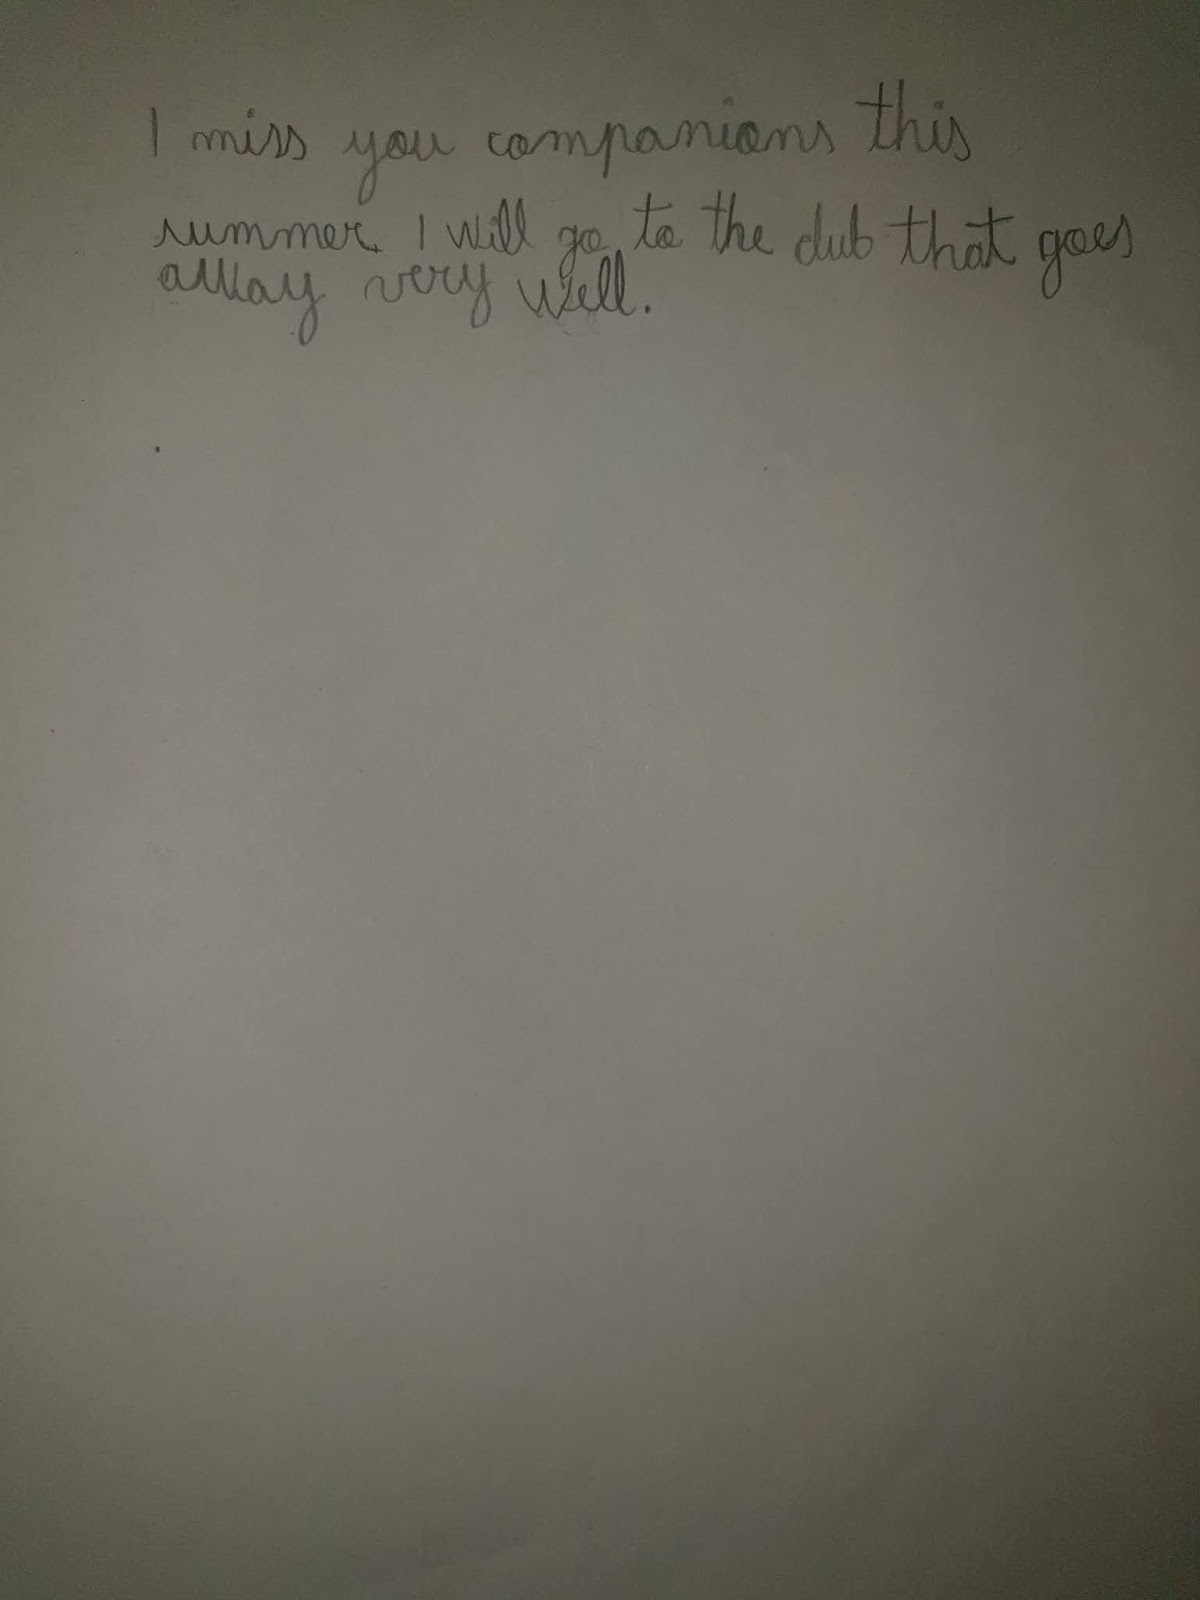 I miss you companions this
summer, I will go to the club that goes
away very well.